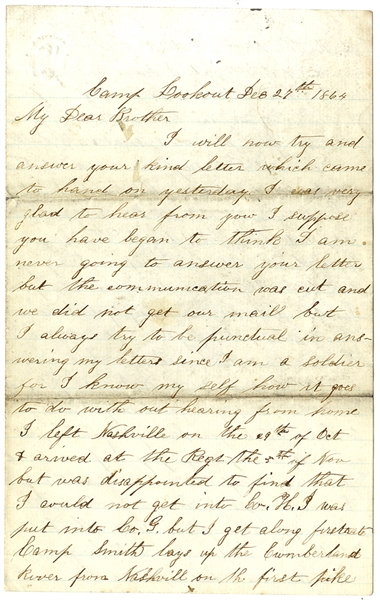 Camp Lookout Dec 27th 1864
My Dear Brother
I will now try and
answer your kind letter which came
to hand on yesterday. I was very
glad to hear from you I suppose
you have began to think I am
never going to answer your letter
but the communication was cut and
we did not get our mail but
I always try to be punctual in ans-
wering my letters since I am a soldier
for I know my self how it goes
to do with out hearing from home
I left Nashville on the 29th of Oct
& arived at the Regt the 5th of Nov
but was disappointed to find that
I could not get into Co. H. I was
put into Co. G. but I get along firstrate
Camp Smith lays up the Cumberland
River from Nashvill on th first pike